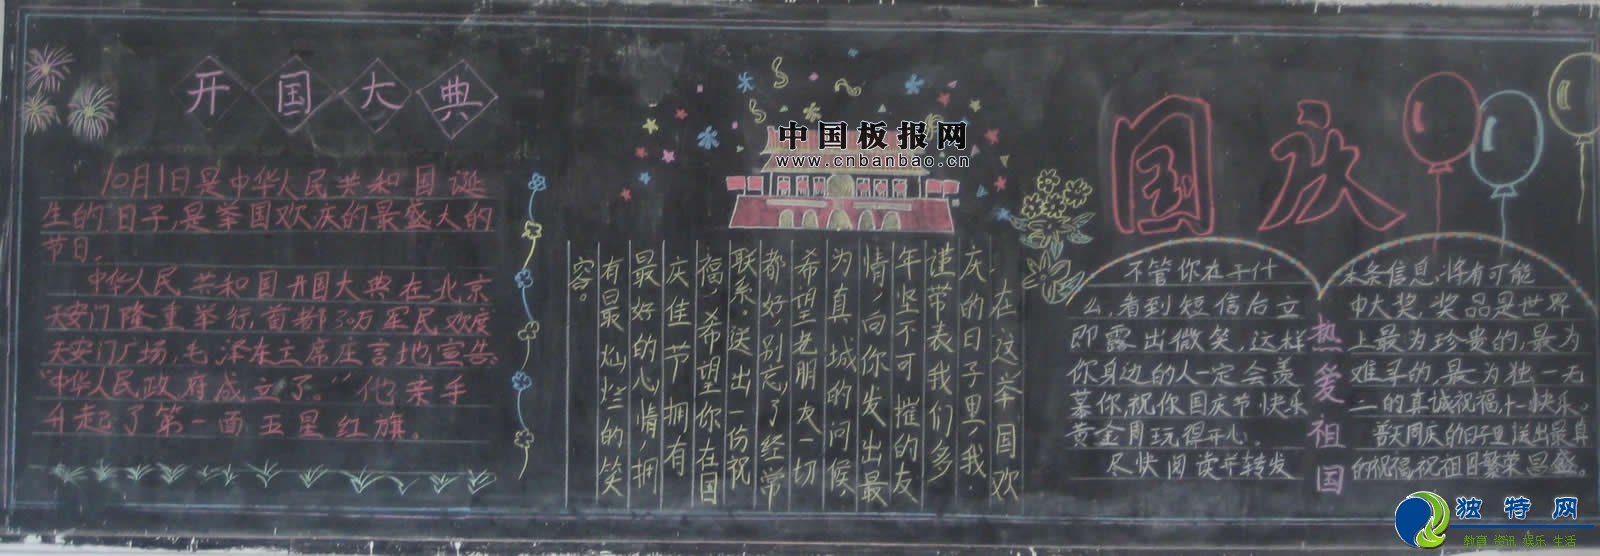 开国大典
10月1日是中华人民共和国诞
生的日子,是举国欢庆的最盛大的
节日。
中华人民共和国开国大典在北京
天安门隆重举行,首都30万军民欢度
天安门广场,毛泽东主席庄言地宣告
“中华人民政府成立了。”他亲手
升起了第一面五星红旗。
中国板报网
www.cnbanbao.cn
在这举国欢
庆的日子里,我
谨带表我们多
年坚不可摧的友
情,向你发出最
为真城的问候,
希望老朋友一切
都好,别忘了经常
联系。送出一份祝
福,希望你在国
庆佳节拥有
最好的心情,拥
有最灿烂的笑
容。
国庆
不管你在干什
么,看到短信后立
即露出微笑,这样
你身边的人一定会羡
慕你,祝你国庆节快乐
黄金周玩得开心。
尽快阅读并转发
热爱祖国
本条信息,将有可能
中大奖,奖品是世界
上最为珍贵的,最为
难寻的,最为独一无
二的真诚祝福,十一快乐。
普天同庆的日子里送出最真
的祝福,祝祖国繁荣昌盛。
独特网
教育 资讯 娱乐 生活